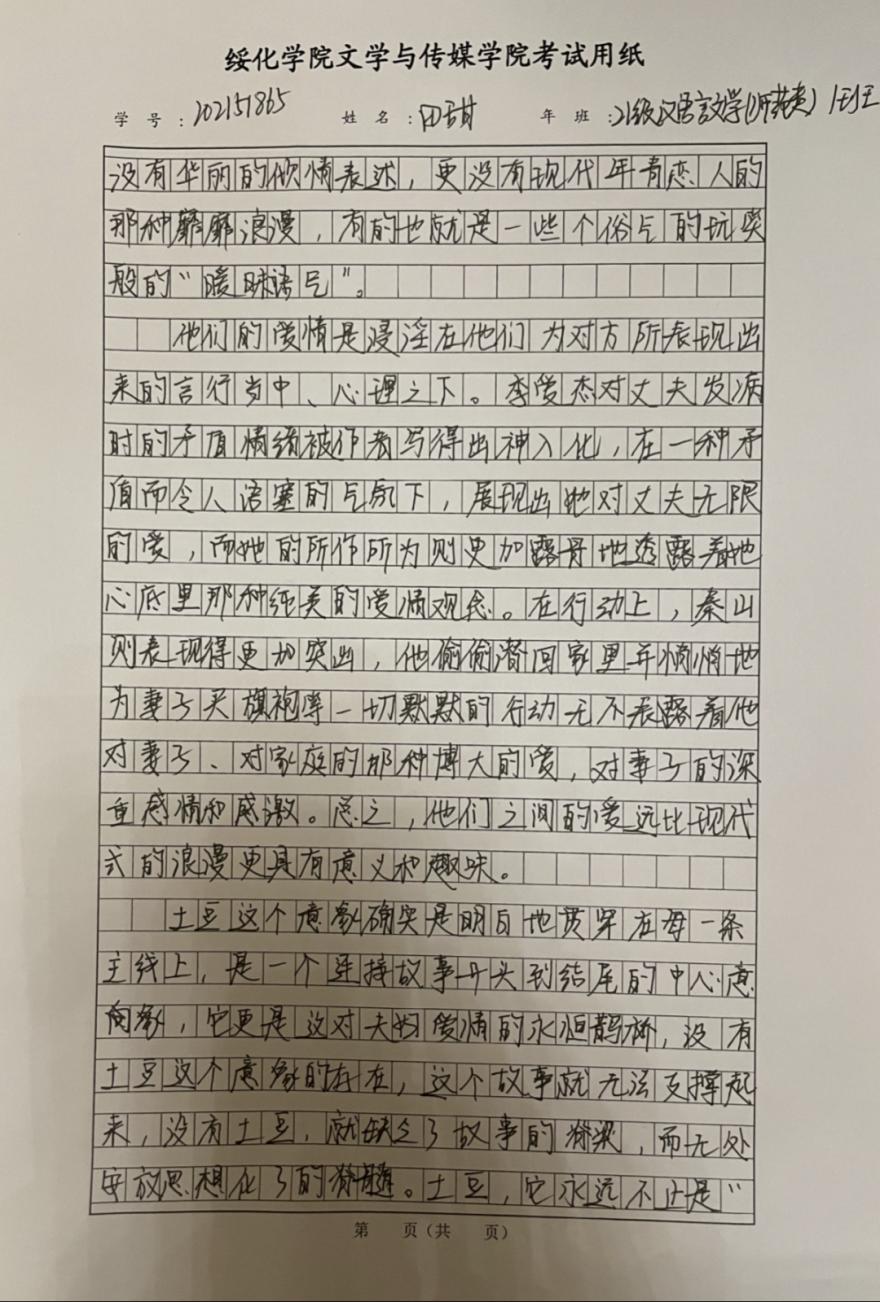 绥化学院文学与传媒学院考试用纸
学 号 :202151865 姓 名 :田甜 年 班 :21级汉语言文学(师范类)1班
没有华丽的欣情表述，更没有现代年青恋人的
那种靡靡浪漫，有的也就是一些个俗气的玩笑
般的“暖昧语气”。
他们的爱情是浸淫在他们为对方所表现出
来的言行当中、心理之下。李爱杰对丈夫发病
时的矛盾情绪被作者写得出神入化，在一种矛
盾而令人语塞的气氛下，展现出她对丈夫无限
的爱，而她的所作所为则更加露骨地透露着她
心底里那种纯美的爱情观念。在行动上，秦山
则表现得更加突出，他偷偷潜回家里并悄悄地
为妻子买旗袍等一切默默的行动无不表露着他
对妻子、对家庭的那种博大的爱，对妻子的深
重感情和感激。总之，他们之间的爱远比现代
式的浪漫更具有意义和趣味。
土豆这个意象确实是明白地贯穿在每一条
主线上，是一个连接故事开头到结尾的中心意
向象，它更是这对夫妇爱情的永恒鹊桥，没有
土豆这个意象的存在，这个故事就无法支撑起
来，没有土豆，就缺乏了故事的脊梁，而无处
安放思想化了的脊髓。土豆，它永远不止是“
第 页(共 页)